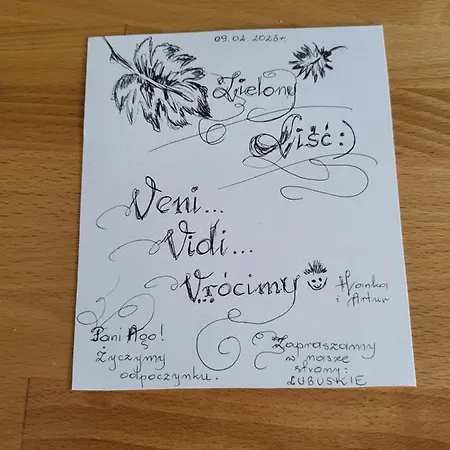 09.02.2023r
Zielony
Liść :)
Veni...
Vidi...
Vrócimy
Hanka
i Artur
Pani Ago!
Życzymy
odpoczynku.
Zapraszamy
w nasze
strony:
LUBUSKIE